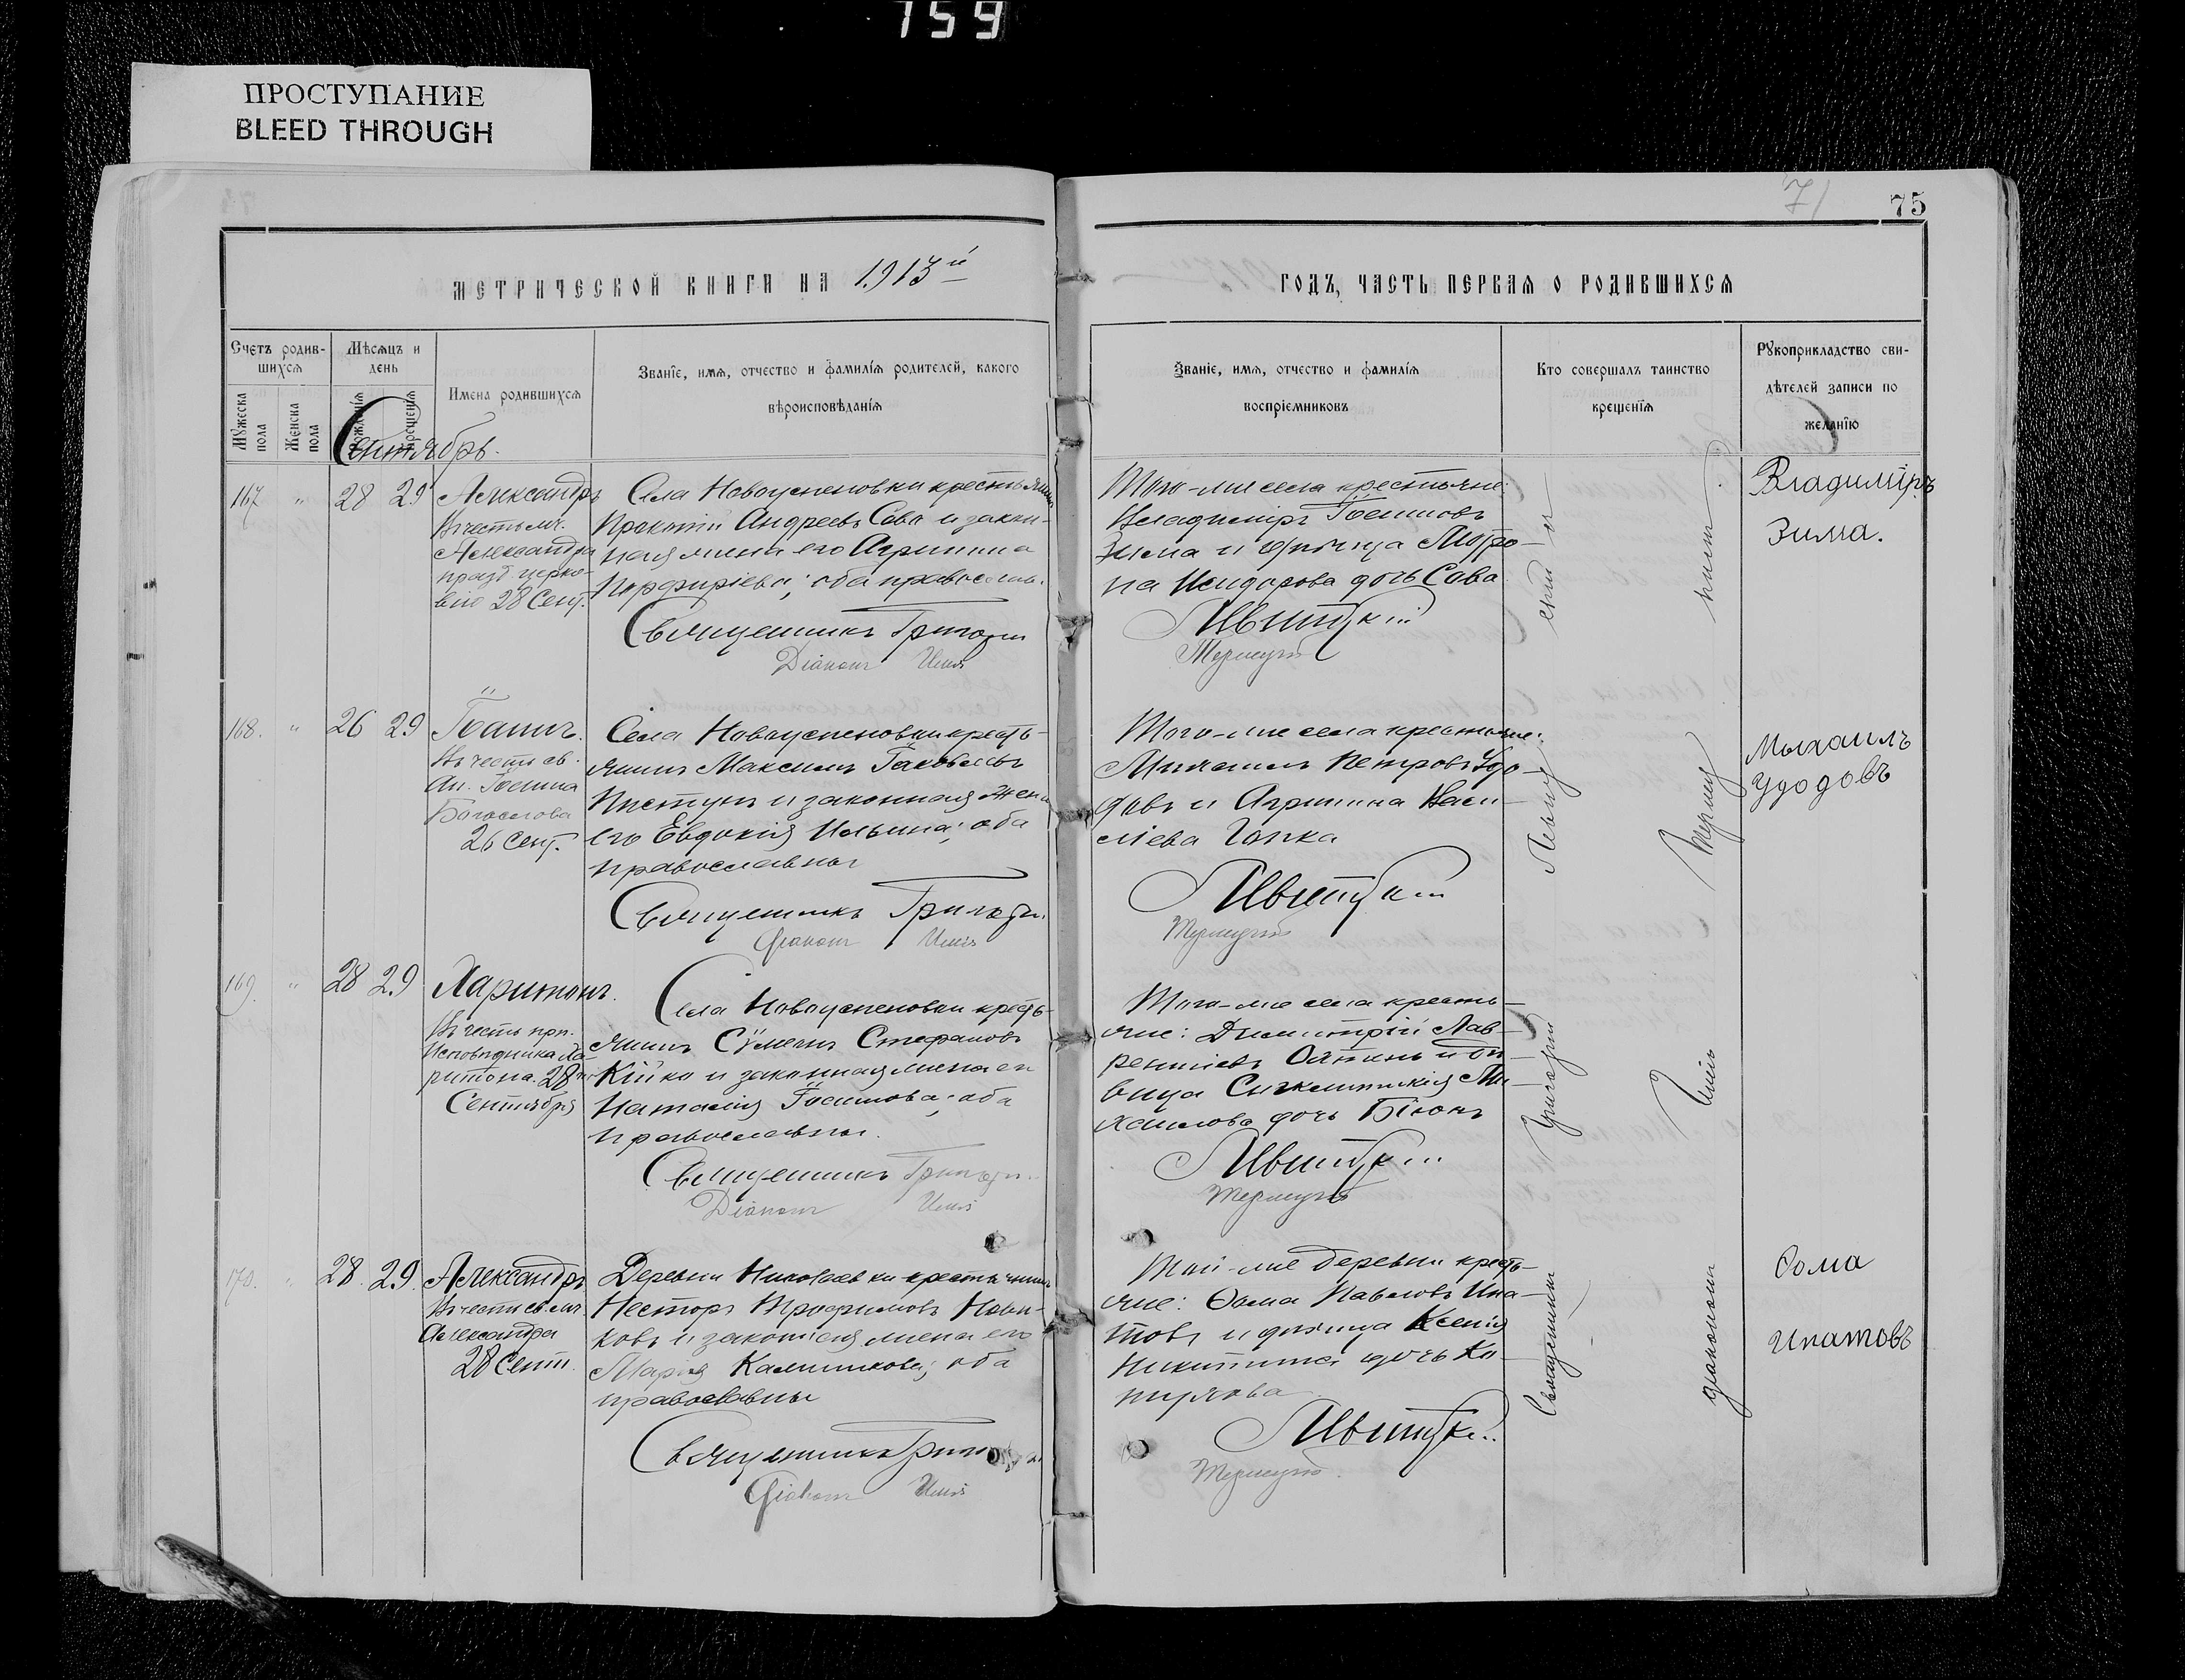 159
ПРОСТУПАНИЕ
BLEED THROUGH
71
75
МЕТРИЧЕСКОЙ КНИГИ НА 1913й
ГОДЪ, ЧАСТЬ ПЕРВАЯ О РОДИВШИХСЯ
Счетъ родив-
шихся
Мужеска пола
Женска пола
Мѣсяцъ и
день
Рожденія
Крещенія
Имена родившихся
Званіе, имя, отчество и фамилія родителей, какого
вѣроисповѣданія
Званіе, имя, отчество и фамилія
воспріемниковъ
Кто совершалъ таинство
крещенія
Рукоприкладство сви-
дѣтелей записи по
желанію
Сентябрь.
167 " 28 29 Александръ
Въ честь мч.
Александра
празд. церко-
вію 28 Сент.
Села Новоуспеновки крестьянинъ
Прокопій Андреевъ Сова и закон-
ная жена его Агрипина
Порфиріева; оба правосла.
Священникъ Григорій
Діаконъ
Того-же села крестьяне:
Владиміръ Іоанновъ
Зима и дѣвица Матро-
на Исидорова дочь Сова
Владиміръ
Зима.
168. " 26 29 Іоаннъ.
Въ честь св.
Ап. Іоанна
Богослова
26 Сент.
Села Новоуспеновки кресть-
янинъ Максимъ Іаковлевъ
Пистунъ и законная жена
его Евдокія Ильина; оба
православны
Священникъ Григорій
Діаконъ
Того-же села крестьяне:
Михаилъ Петровъ Удо-
довъ и Агрипина Васи-
ліева Гапка
Мыхаилъ
Удодовъ
169. " 28 29 Харитонъ.
Въ честь прп.
Исповѣдника Ха-
ритона. 28го
Сентября
Села Новоуспеновки кресть-
янинъ Сѵмеонъ Стефановъ
Кійко и законная жена его
Наталія Іоаннова; оба
православны.
Священникъ Григорій
Діаконъ
Того-же села кресть-
яне: Димитрій Лав-
рентіевъ
вица Синклитикія Ми-
хаилова дочь Біюкъ
170. " 28. 29. Александръ
Въ честь св. мч.
Александра
28 Сент.
Деревни Николаевки крестьянинъ
Несторъ Трофимовъ Нови-
ковъ и законная жена его
Марія Калинникова; оба
православны
Священникъ Григорій
Діаконъ
Той-же деревни кресть-
яне: Ѳома Павловъ Ипа-
товъ и дѣвица Ксенія
Никитина дочь Ка-
пирова
Ѳома
Ипатовъ
Священникъ Григорій
діакономъ